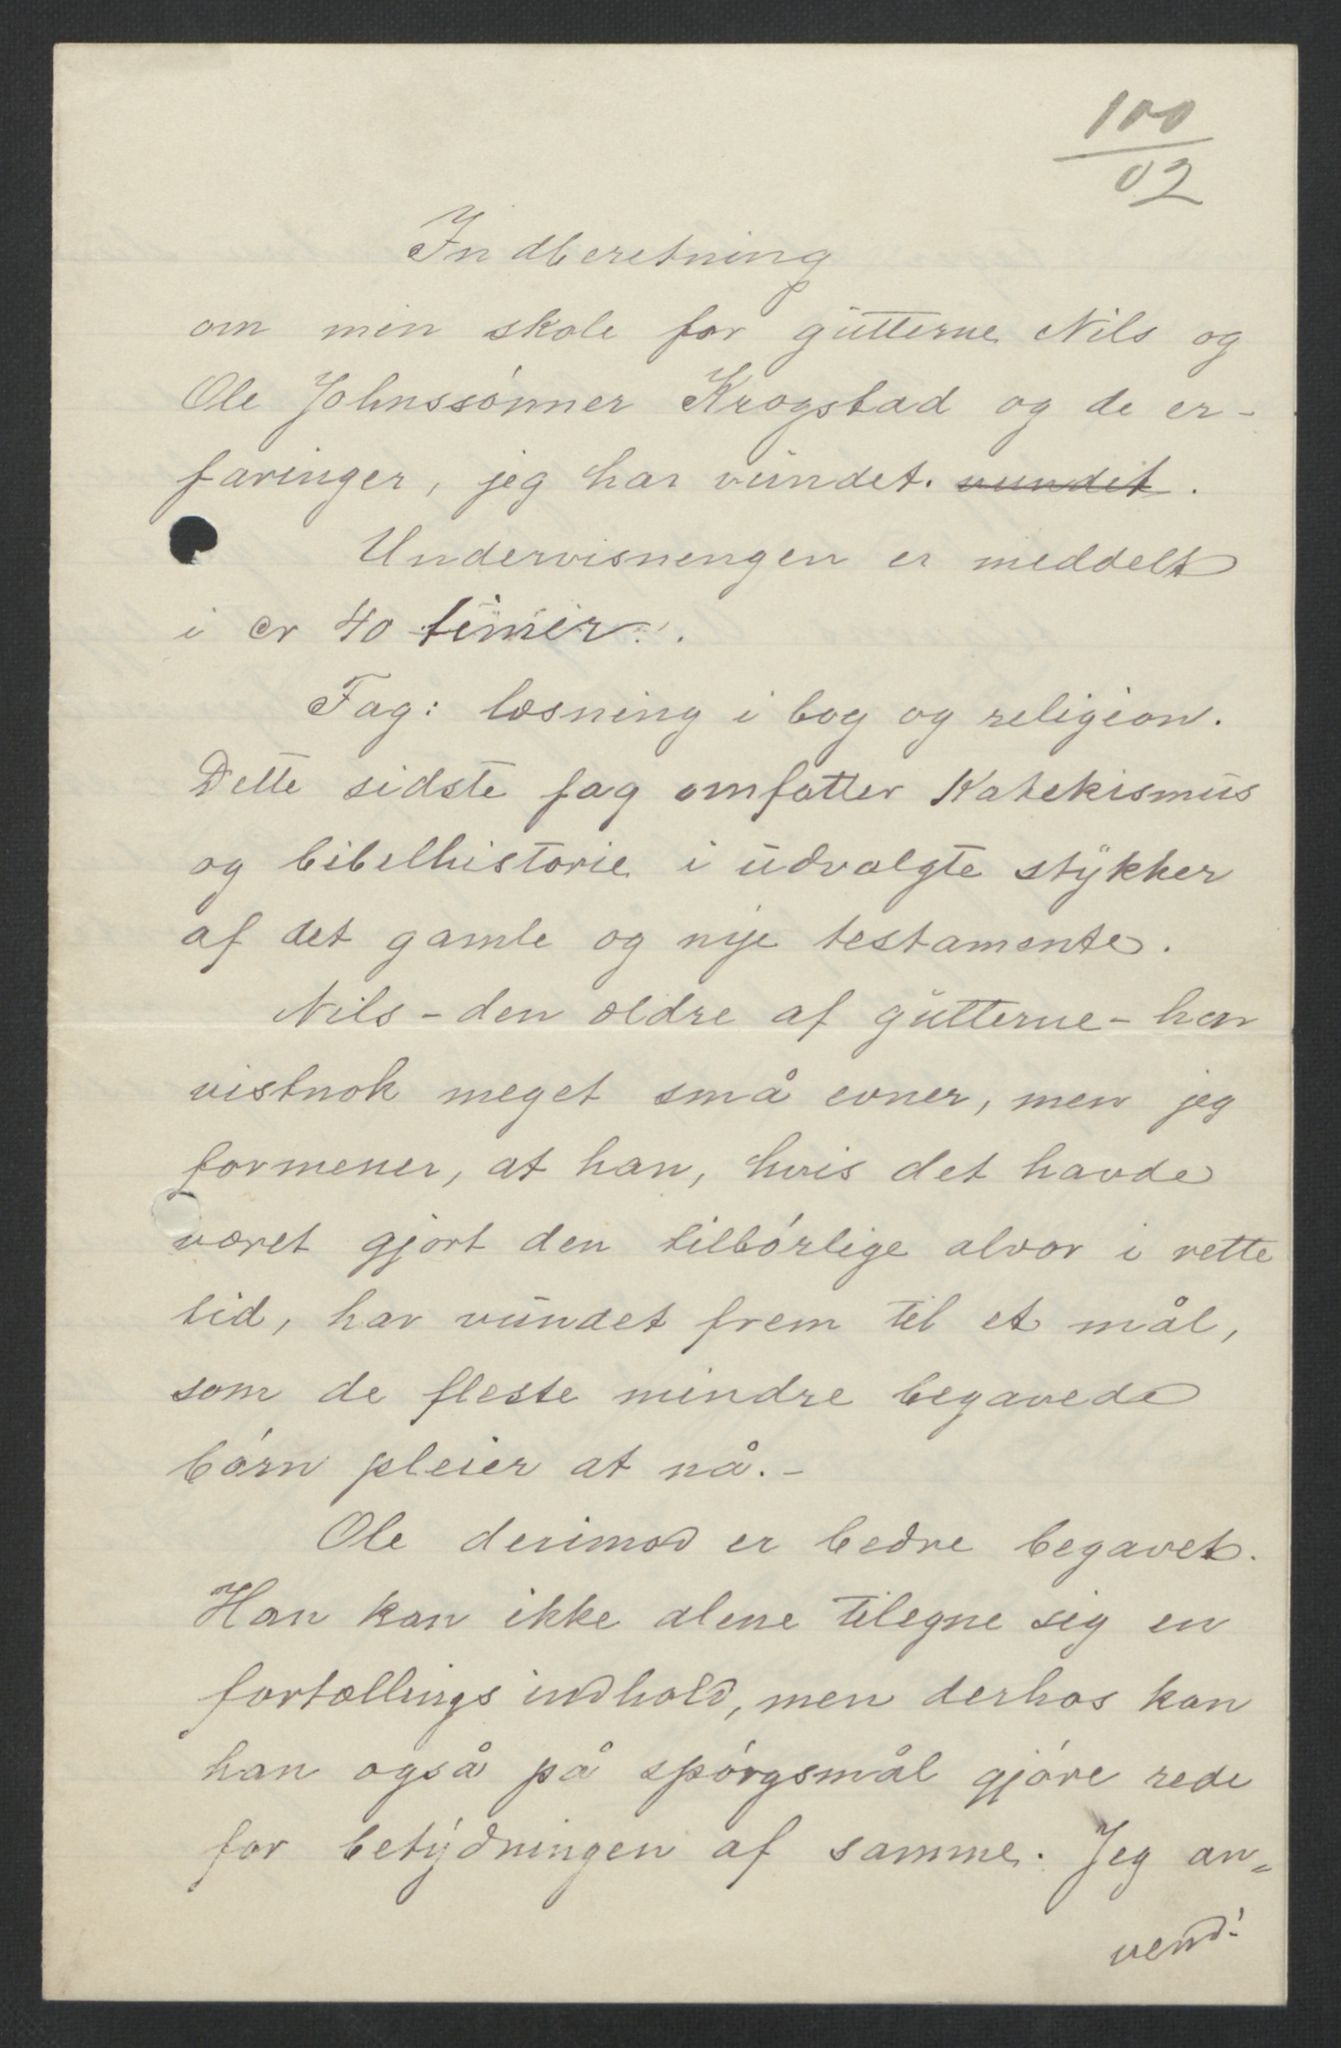 100
02
Indberetning
om min skole for gutterne Nils og
Ole Johnssønner Krogstad og de er-
faringer, jeg har vundet. vundet.
Undervisningen er meddelt
i cr 40 timer.
Fag: læsning i bog og religion.
Dette sidste fag omfatter Katekismus
og bibelhistorie i udvalgte stykker
af det gamle og nye testamente.
Nils - den ældre af gutterne - har
vistnok meget små evner, men jeg
formener, at han, hvis det havde
været gjort den tilbørlige alvor i rette
tid, har vundet frem til et mål,
som de fleste mindre begavede
børn pleier at nå. -
Ole derimod er bedre begavet.
Han kan ikke alene tilegne sig en
fortællings indhold, men derhos kan
han også på spørgsmål gjøre rede
for betydningen af samme. Jeg an-
vend!